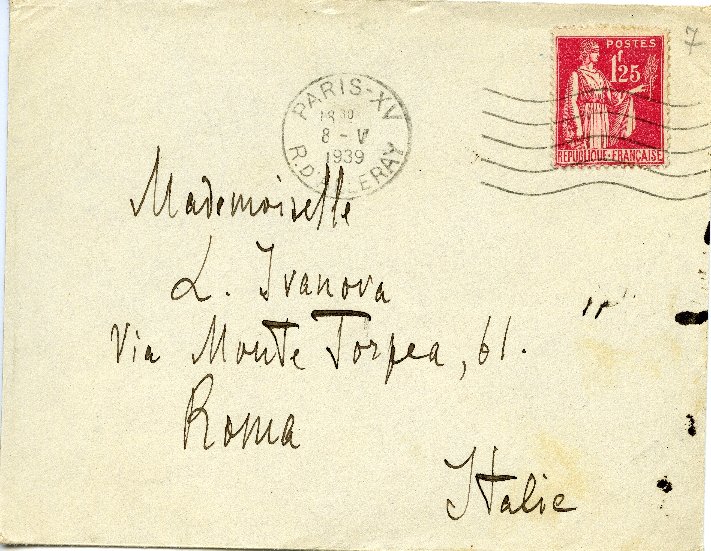 7
POSTES
1f25
REPUBLIQUE FRANÇAISE
PARIS-XV
18 30
8 - V
1939
R.D'ALLERAY
Mademoiselle
L. Ivanova
Via Monte Torpea, 61.
Roma
Italie